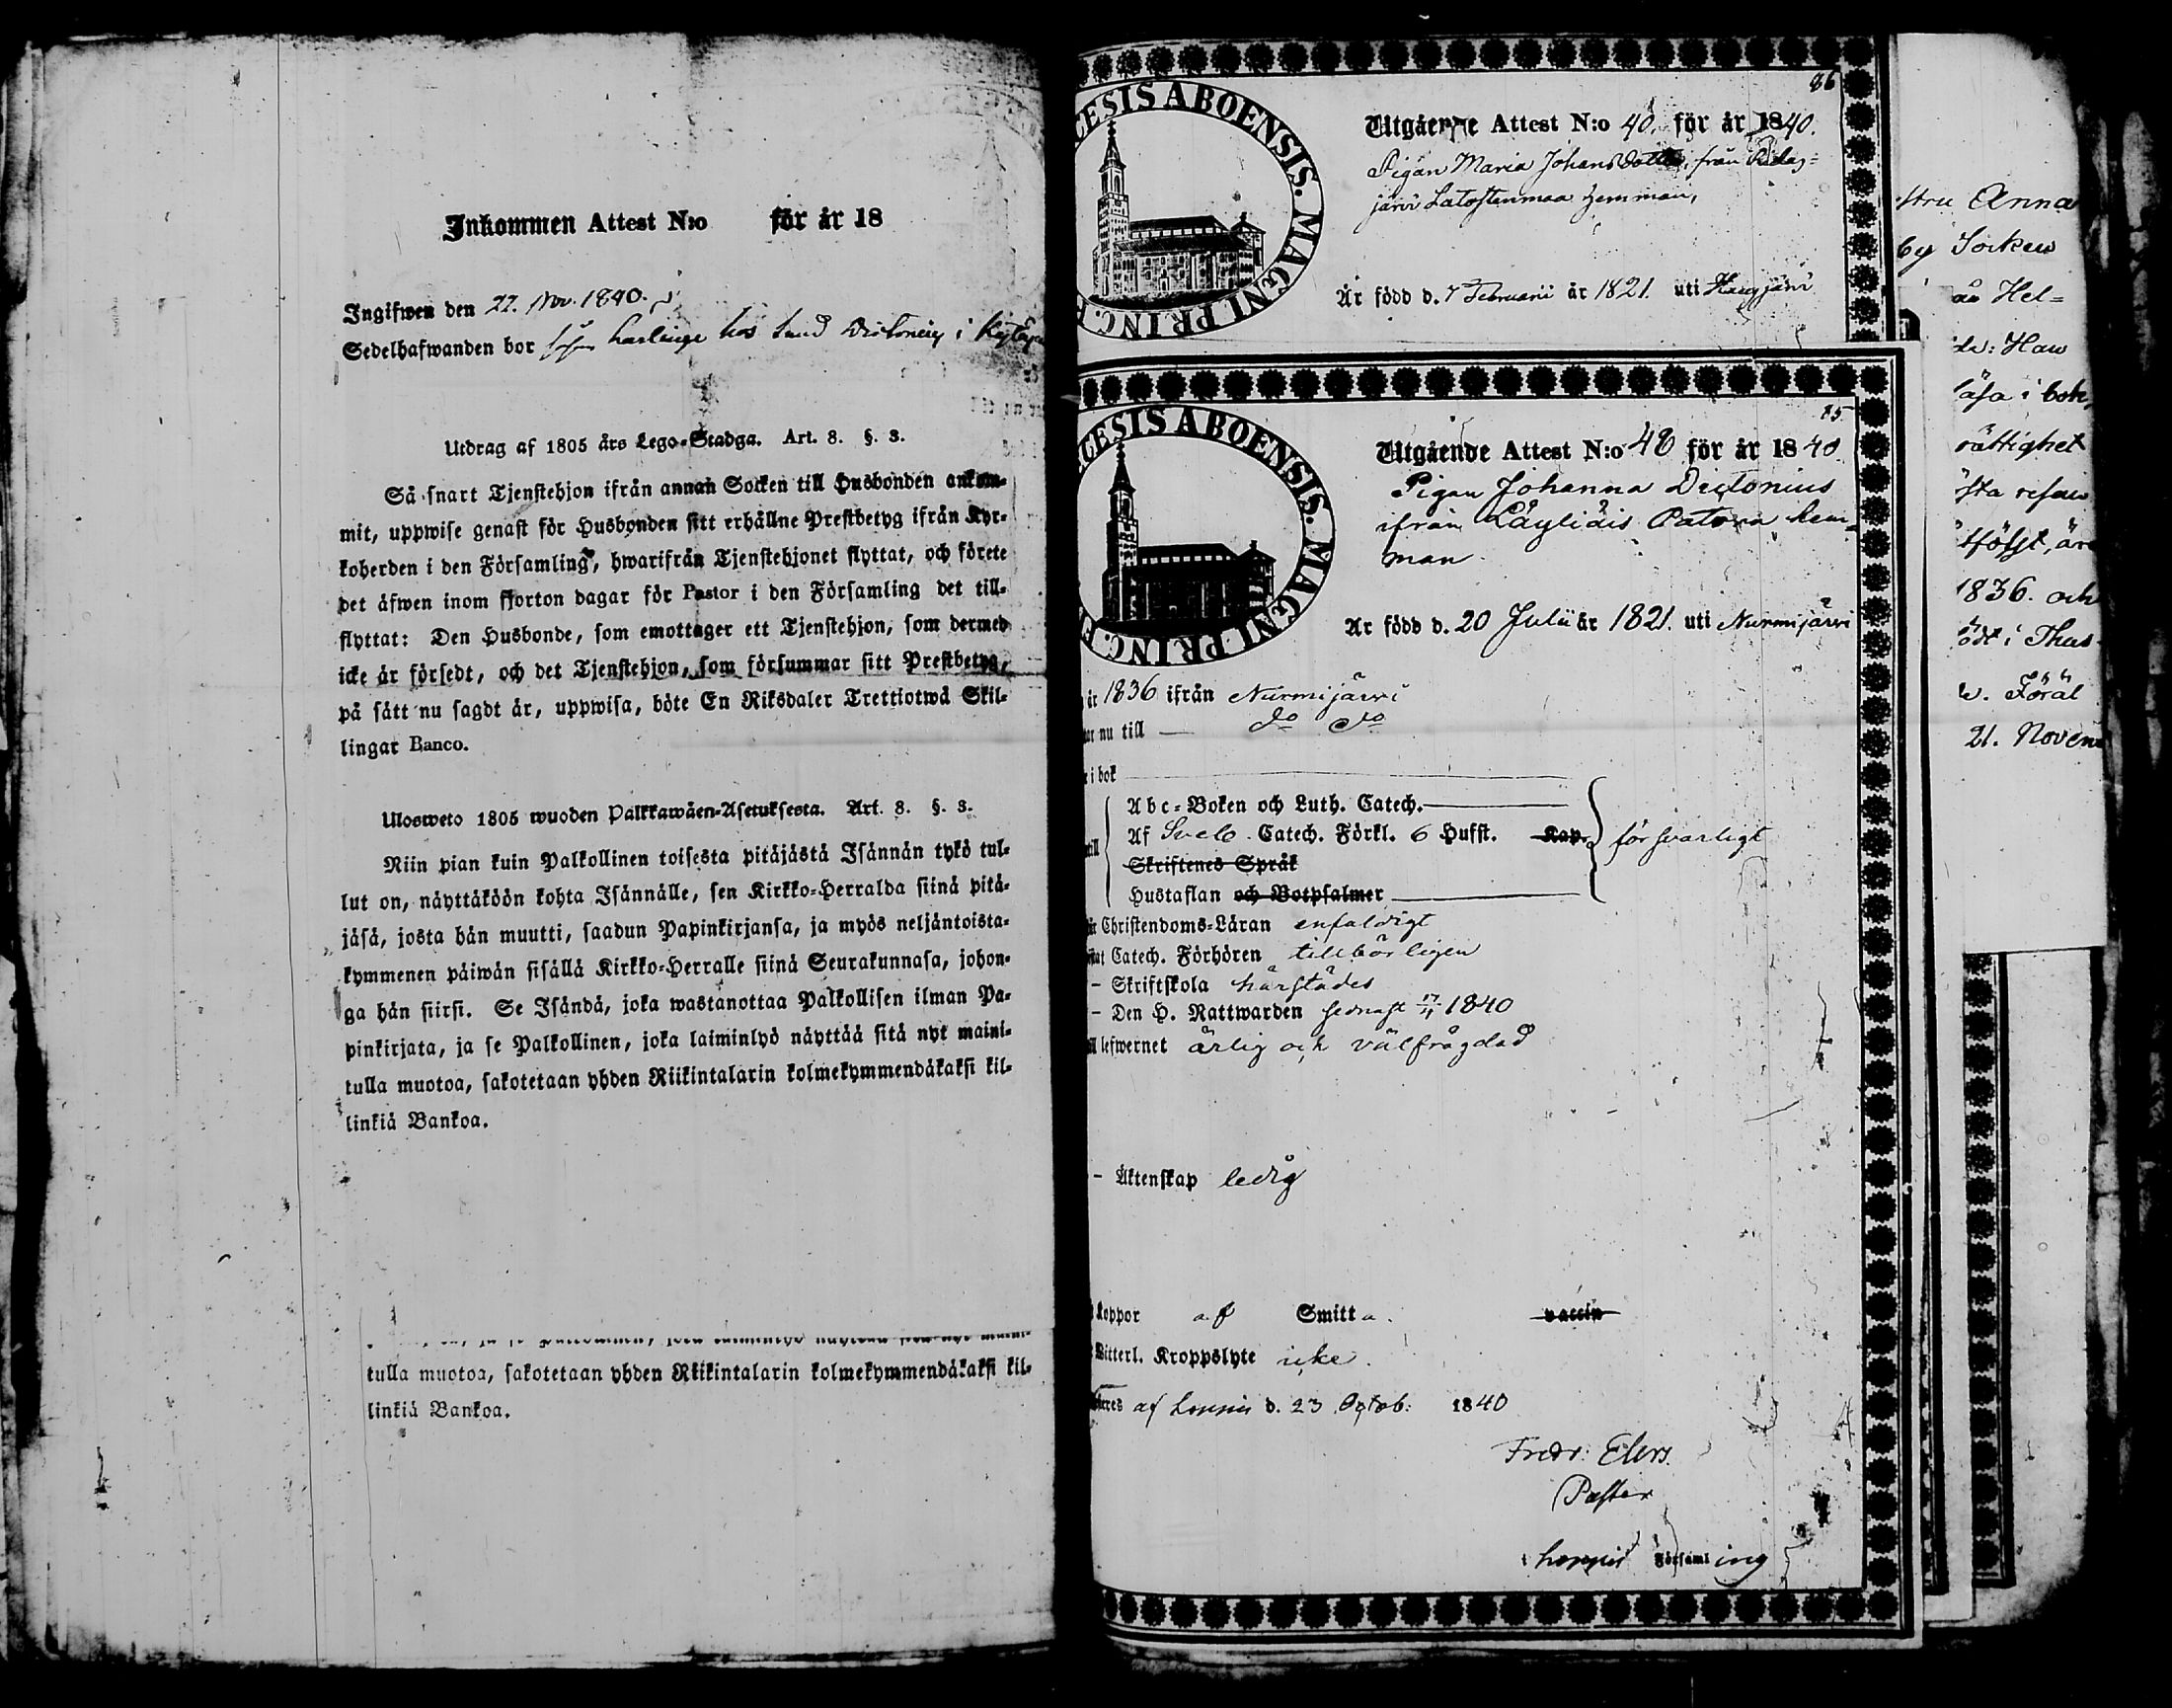 Inkommen Attest N:o för år 18
Ingifwen den 22. Nov. 1840.
Sedelhafwanden bor hos i
Utdrag af 1805 års Lego-Stadga. Art. 8. §. 3.
Så snart Tjenstehjon ifrån annan Socken till Husbonden ankom-
mit, uppwise genast för Husbonden sitt erhållne Prestbetyg ifrån Kyr-
koherden i den Församling, hwarifrån Tjenstehjonet flyttat, och förete
det äfwen inom fjorton dagar för Pastor i den Församling det till-
flyttat: Den Husbonde, som emottager ett Tjenstehjon, som dermed
icke är försedt, och det Tjenstehjon, som försummar sitt Prestbetyg,
på sätt nu sagdt är, uppwisa, böte En Riksdaler Trettiotwå Skil-
lingar Banco.
Ulosweto 1805 wuoden Palkkawäen-Asetuksesta. Art. 8. §. 3.
Niin pian kuin Palkollinen toisesta pitäjästä Isännän tykö tul-
lut on, näyttäköön kohta Isännälle, sen Kirkko-Herralda siinä pitä-
jäsä, josta hän muutti, saadun Papinkirjansa, ja myös neljäntoista-
kymmenen päiwän sisällä Kirkko-Herralle siinä Seurakunnasa, johon-
ga hän siirsi. Se Isändä, joka wastanottaa Palkollisen ilman Pa-
pinkirjata, ja se Palkollinen, joka laiminlyö näyttää sitä nyt maini-
tulla muotoa, sakotetaan yhden Riikintalarin kolmekymmendäkaksi kil-
linkiä Bankoa.
tulla muotoa, sakotetaan yhden Riikintalarin kolmekymmendäkaksi kil-
linkiä Bankoa.
86
CESIS ABOENSIS. MAGNI PRINC. F
Utgående Attest N:o 40. för år 1840.
Pigan Maria Johansdotter, från
järvi Latostenmaa hemman,
Är född d. 7 Februarii år 1821. uti
85
CESIS ABOENSIS. MAGNI PRINC. F
Utgående Attest N:o 48 för år 1840
Pigan Johanna Dictonius
ifrån Läyliäis hem-
man
Är född d. 20 Julii år 1821. uti Nurmijärvi
år 1836 ifrån Nurmijärvi
nu till — do do
i bok
Abc-Boken och Luth. Catech.
Af Sveb. Catech. Förkl. 6 Hufst. Kap. försvarligt
Skriftenes Språk
Hustaflan och Botpsalmer
Christendoms-Läran enfaldigt
Catech. Förhören tillbörligen
- Skriftskola härstädes
- Den H. Nattwarden sednast 1840
lefwernet ärlig och välfrägdad
- Äktenskap ledig
Koppor af Smitta. vaccin
Witterl. Kroppslyte icke.
af Loppis d. 23 Octob: 1840
Fredr: Elers.
Pastor
i Loppis Församling
Anna
by Socken
Hel=
Haw
läsa i bok
rättighet
1836. och
i Thus
21. Novem